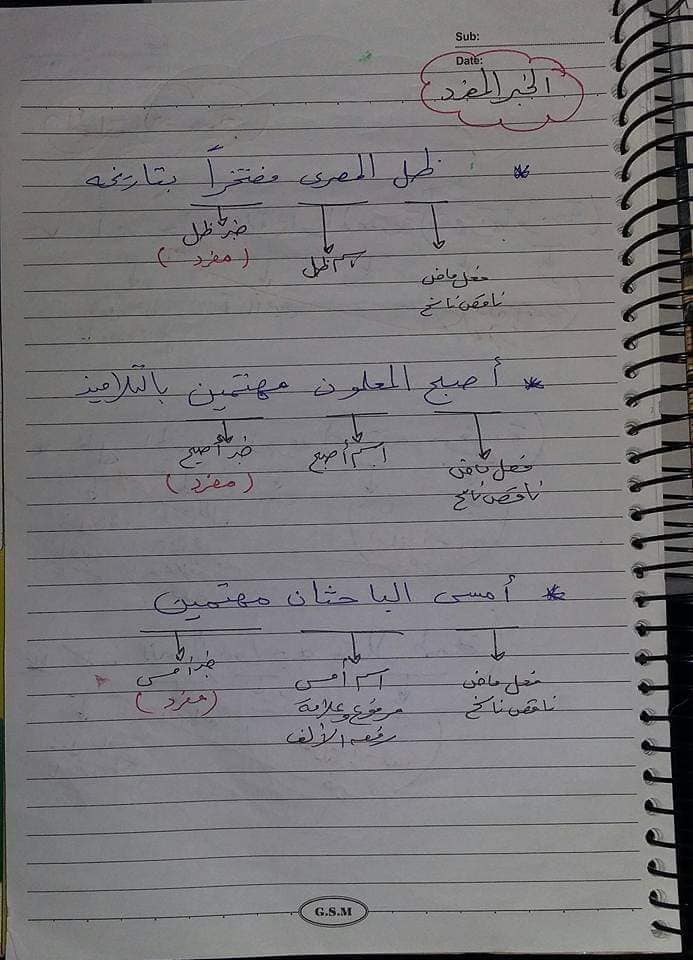 Sub:
Date:
الخبر المفرد
* ظل المصرى مفتخراً بتاريخه
فعل ماض
ناقص ناسخ
اسم ظل
خبر ظل
( مفرد )
* أصبح المعلمون مهتمين بالتلاميذ
فعل ماض
ناقص ناسخ
اسم أصبح
خبر أصبح
( مفرد )
* أمسى الباحثان مهتمين
فعل ماض
ناقص ناسخ
اسم أمسى
مرفوع وعلامة
رفعه الألف
خبر أمسى
( مفرد )
G.S.M